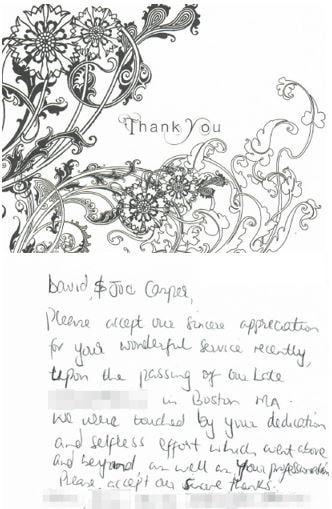 Thank You
David, & Joe Casper,
Please accept our sincere appreciation
for your wonderful service recently,
upon the passing of our late
in Boston MA.
We were touched by your dedication
and selfless effort which went above
and beyond as well as your professionalism
Please accept our sincere thanks.